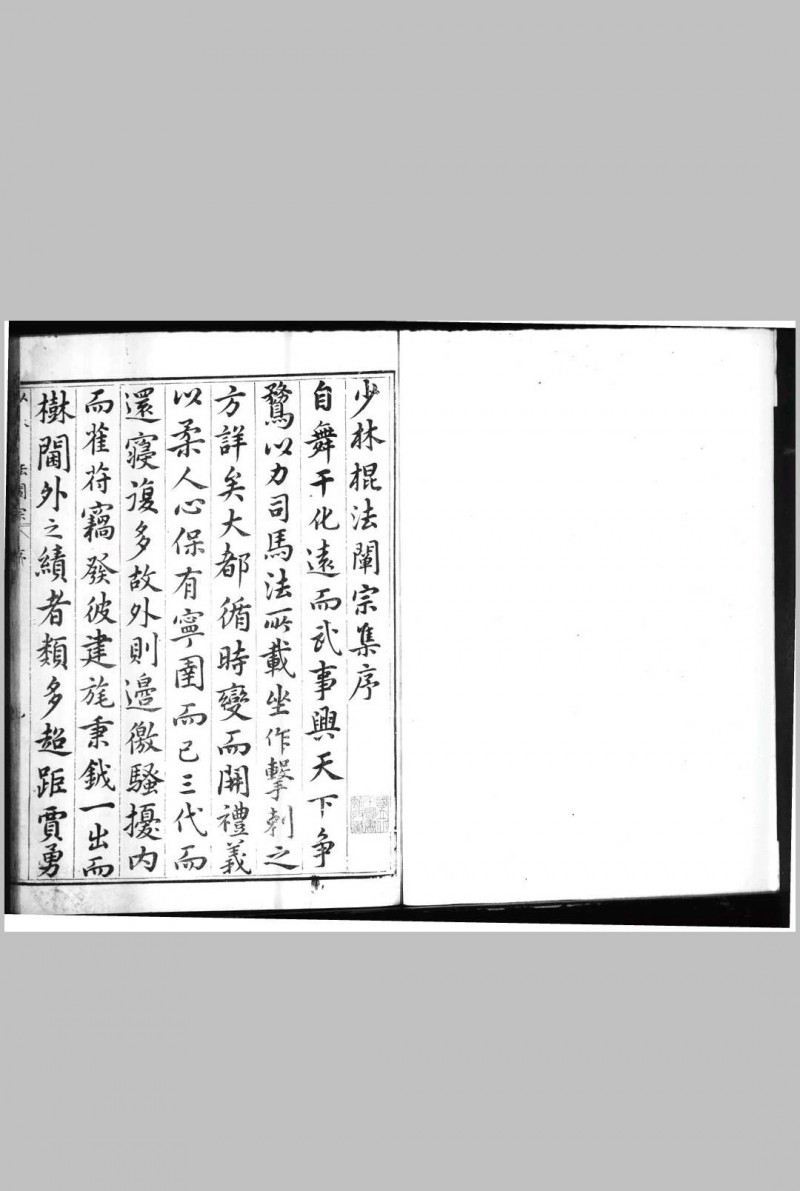 少林棍法闡宗集序
自舞干化遠而武事興天下争
鶩以力司馬法所載坐作擊刺之
方詳矣大都循時變而開禮義
以柔人心保有寧圉而已三代而
還寖復多故外則邊徼騷擾內
而萑苻竊發彼建旄秉鉞一出而
樹閫外之績者類多超距賈勇